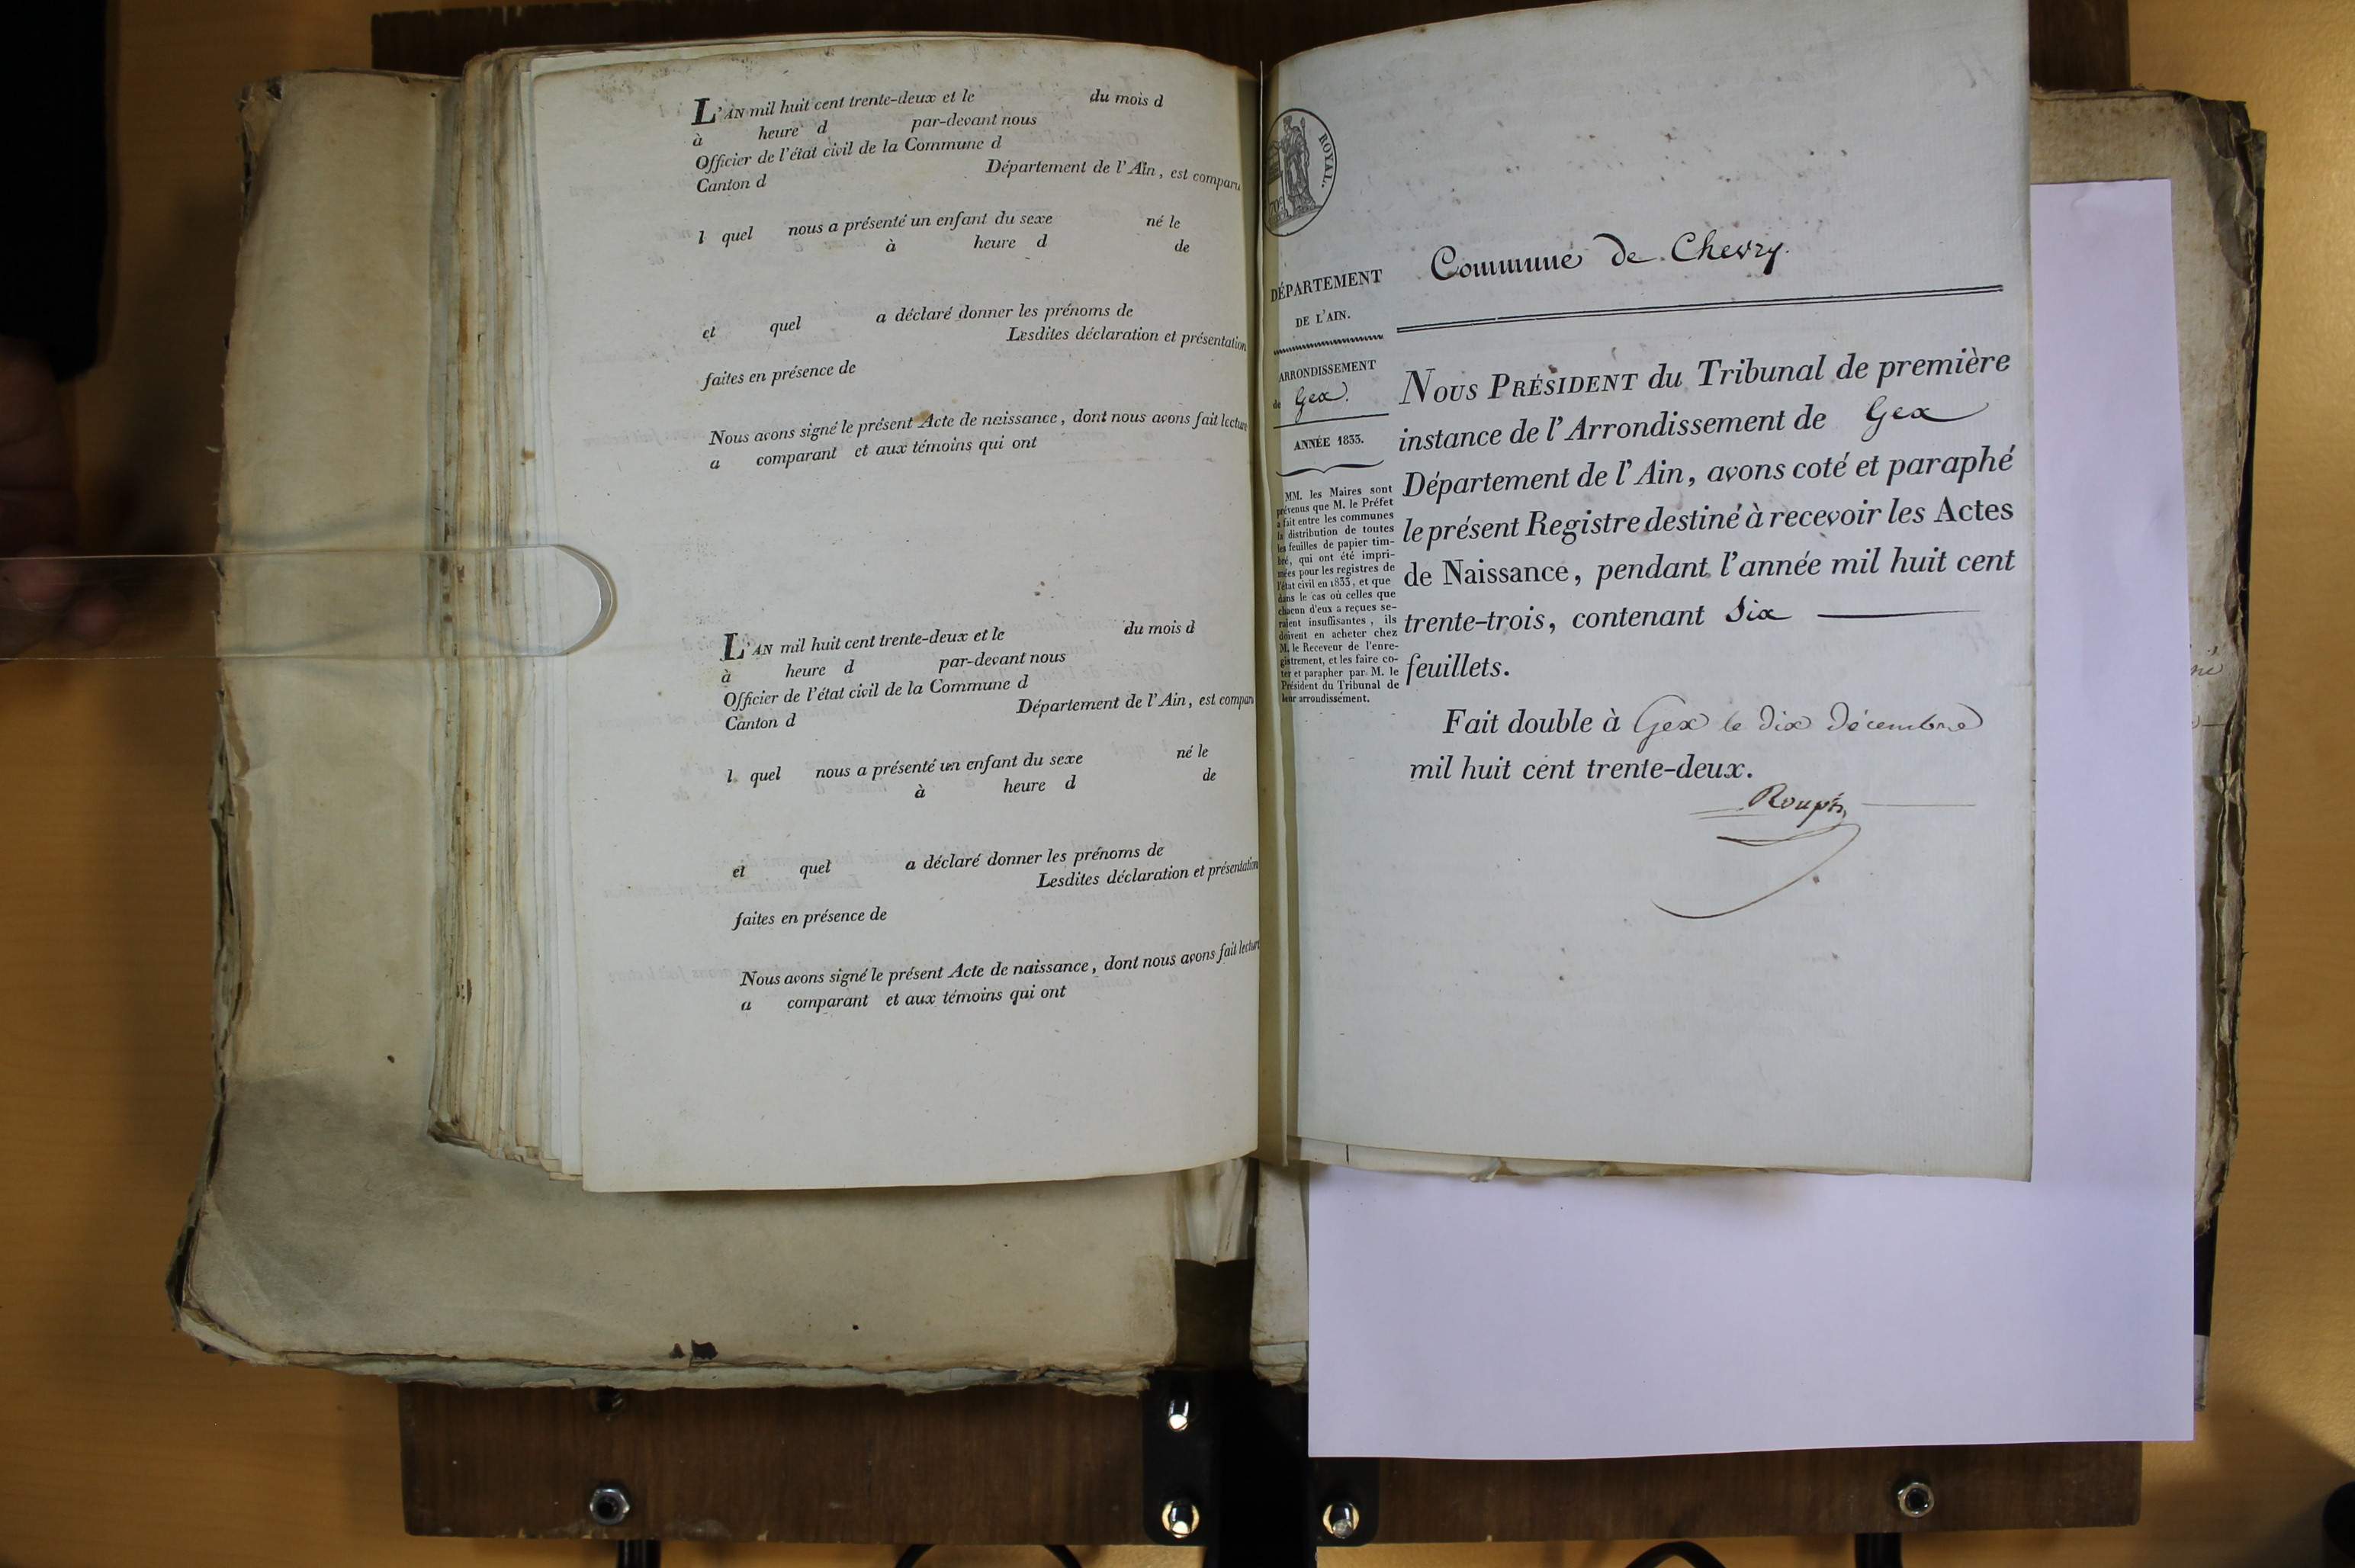 L'AN mil huit cent trente-deux et le du mois d
à heure d par-devant nous
Officier de l'état civil de la Commune d
Canton d Département de l'Ain, est comparu
l quel nous a présenté un enfant du sexe né le
à heure d de
et quel a déclaré donner les prénoms de
Lesdites déclaration et présentation
faites en présence de
Nous avons signé le présent Acte de naissance, dont nous avons fait lecture
a comparant et aux témoins qui ont
L'AN mil huit cent trente-deux et le du mois d
à heure d par-devant nous
Officier de l'état civil de la Commune d
Canton d Département de l'Ain, est compar
l quel nous a présenté un enfant du sexe né le
à heure d de
et quel a déclaré donner les prénoms de
Lesdites déclaration et présentation
faites en présence de
Nous avons signé le présent Acte de naissance, dont nous avons fait lecture
a comparant et aux témoins qui ont
ROYAL.
DÉPARTEMENT
DE L'AIN.
ARRONDISSEMENT
de Gex.
ANNÉE 1833.
MM. les Maires sont
prévenus que M. le Préfet
a fait entre les communes
la distribution de toutes
les feuilles de papier tim-
bré, qui ont été impri-
mées pour les registres de
l'état civil en 1833, et que
dans le cas où celles que
chacun d'eux a reçues se-
raient insuffisantes, ils
doivent en acheter chez
M. le Receveur de l'enre-
gistrement, et les faire co-
ter et parapher par M. le
Président du Tribunal de
leur arrondissement.
Commune de Chevry.
NOUS PRÉSIDENT du Tribunal de première
instance de l'Arrondissement de Gex
Département de l'Ain, avons coté et paraphé
le présent Registre destiné à recevoir les Actes
de Naissance, pendant l'année mil huit cent
trente-trois, contenant Six
feuillets.
Fait double à Gex le dix décembre
mil huit cent trente-deux.